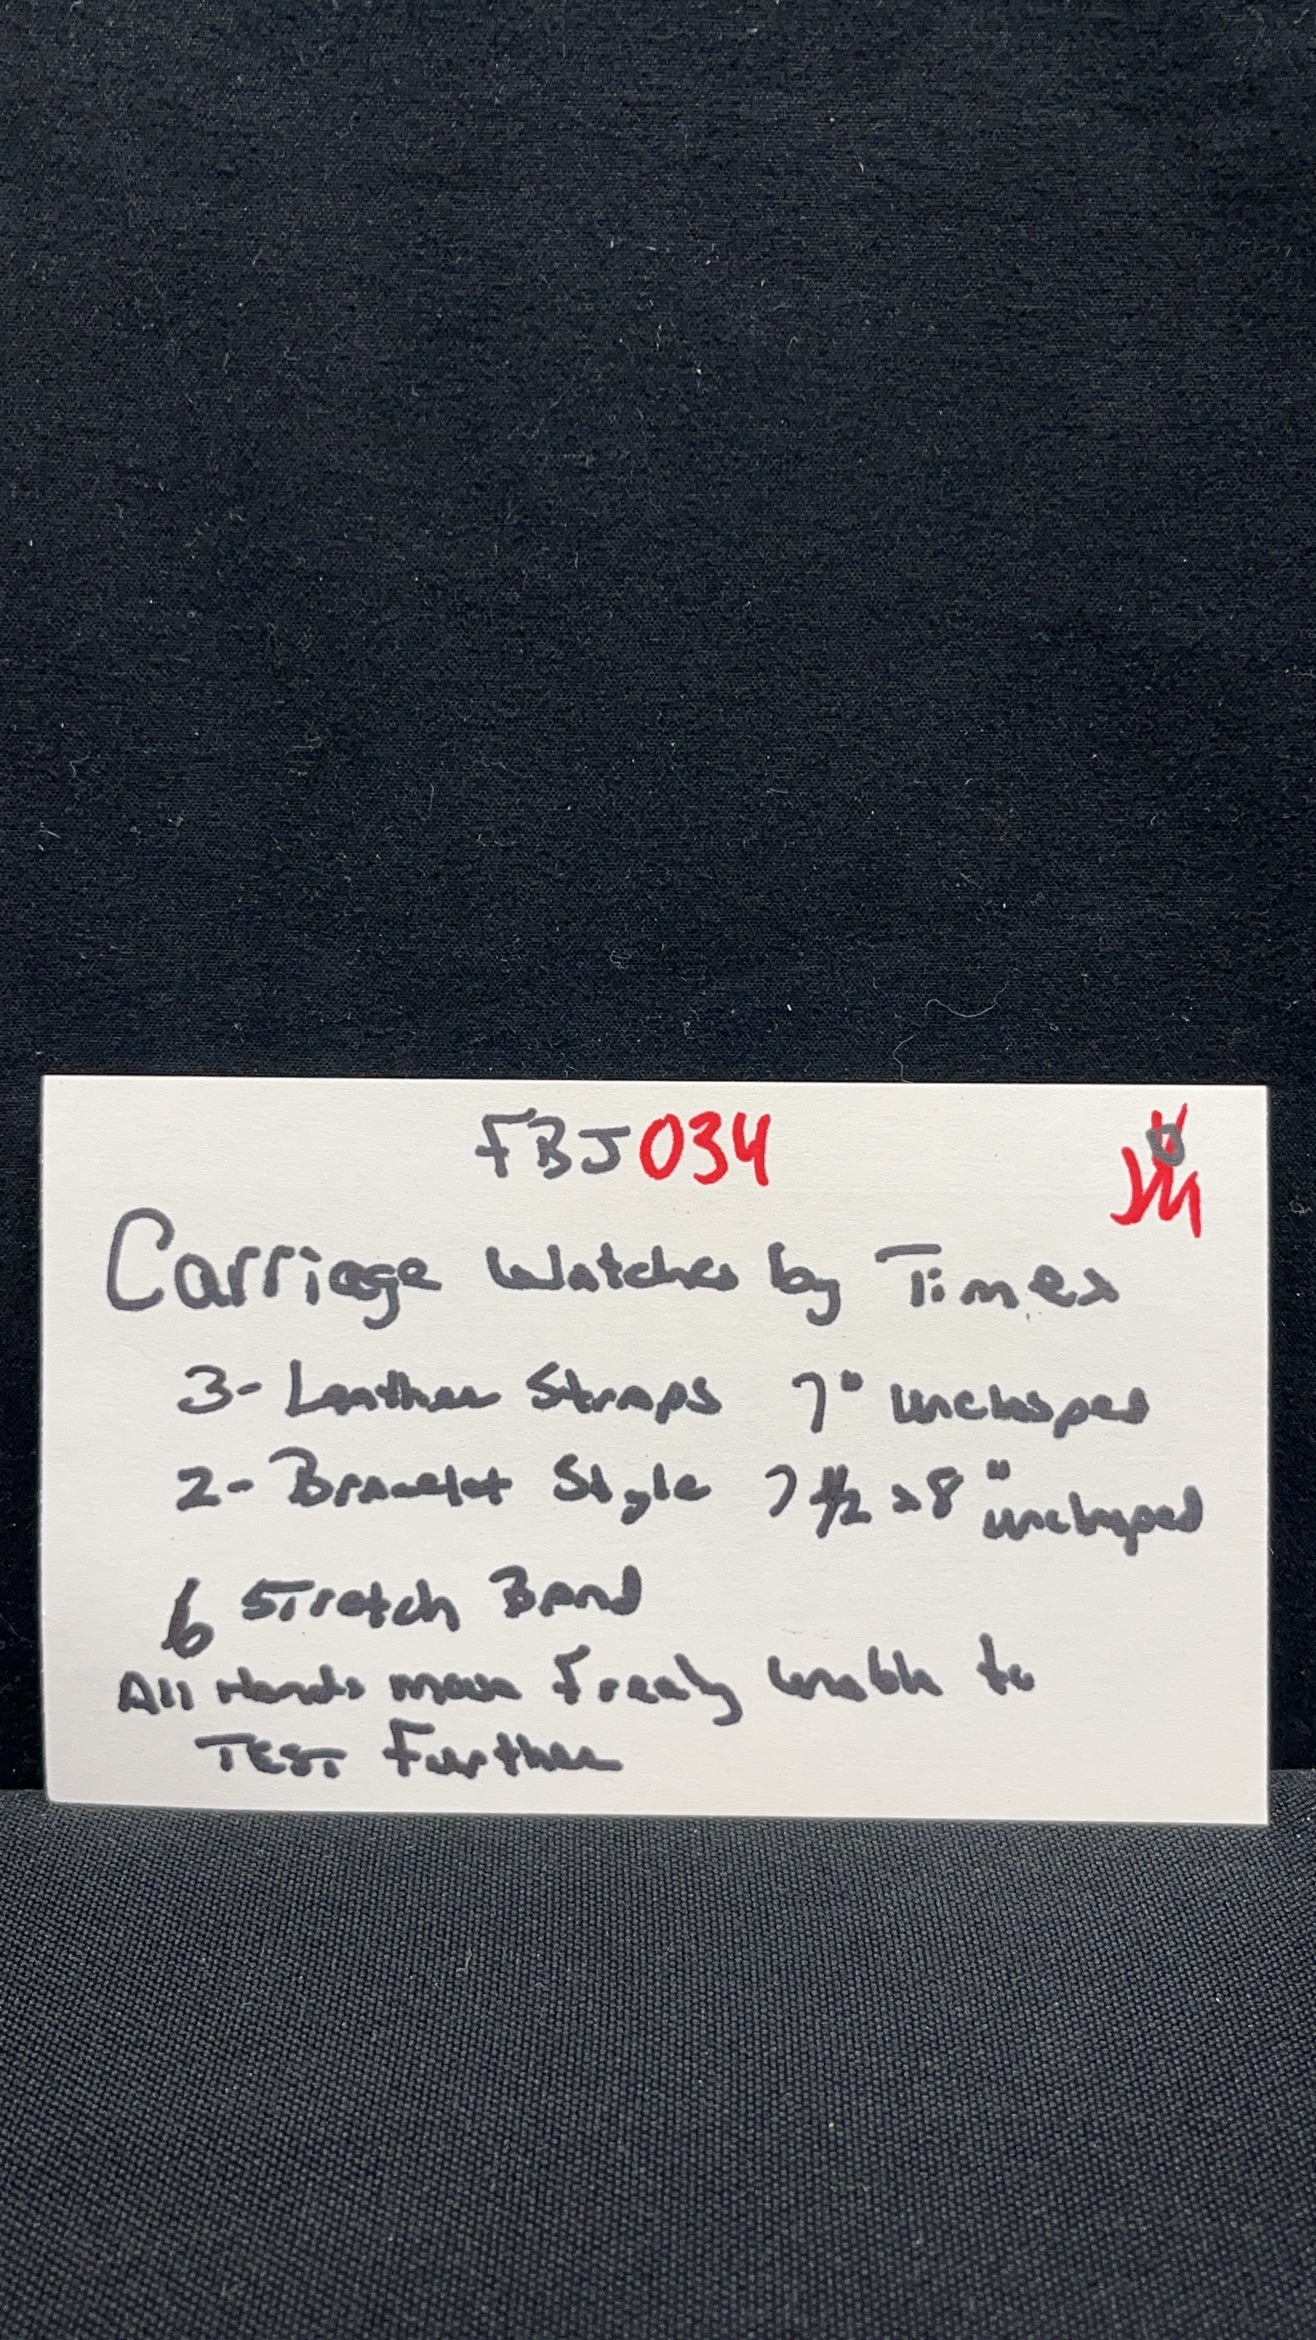 FBJ034
Carriage Watches by Timex
3- Leather Straps 7" unclasped
2- Bracelet Style 7 1/2 8" unclasped
6 Stretch Band
All Hands move Freely unable to
TEST Further